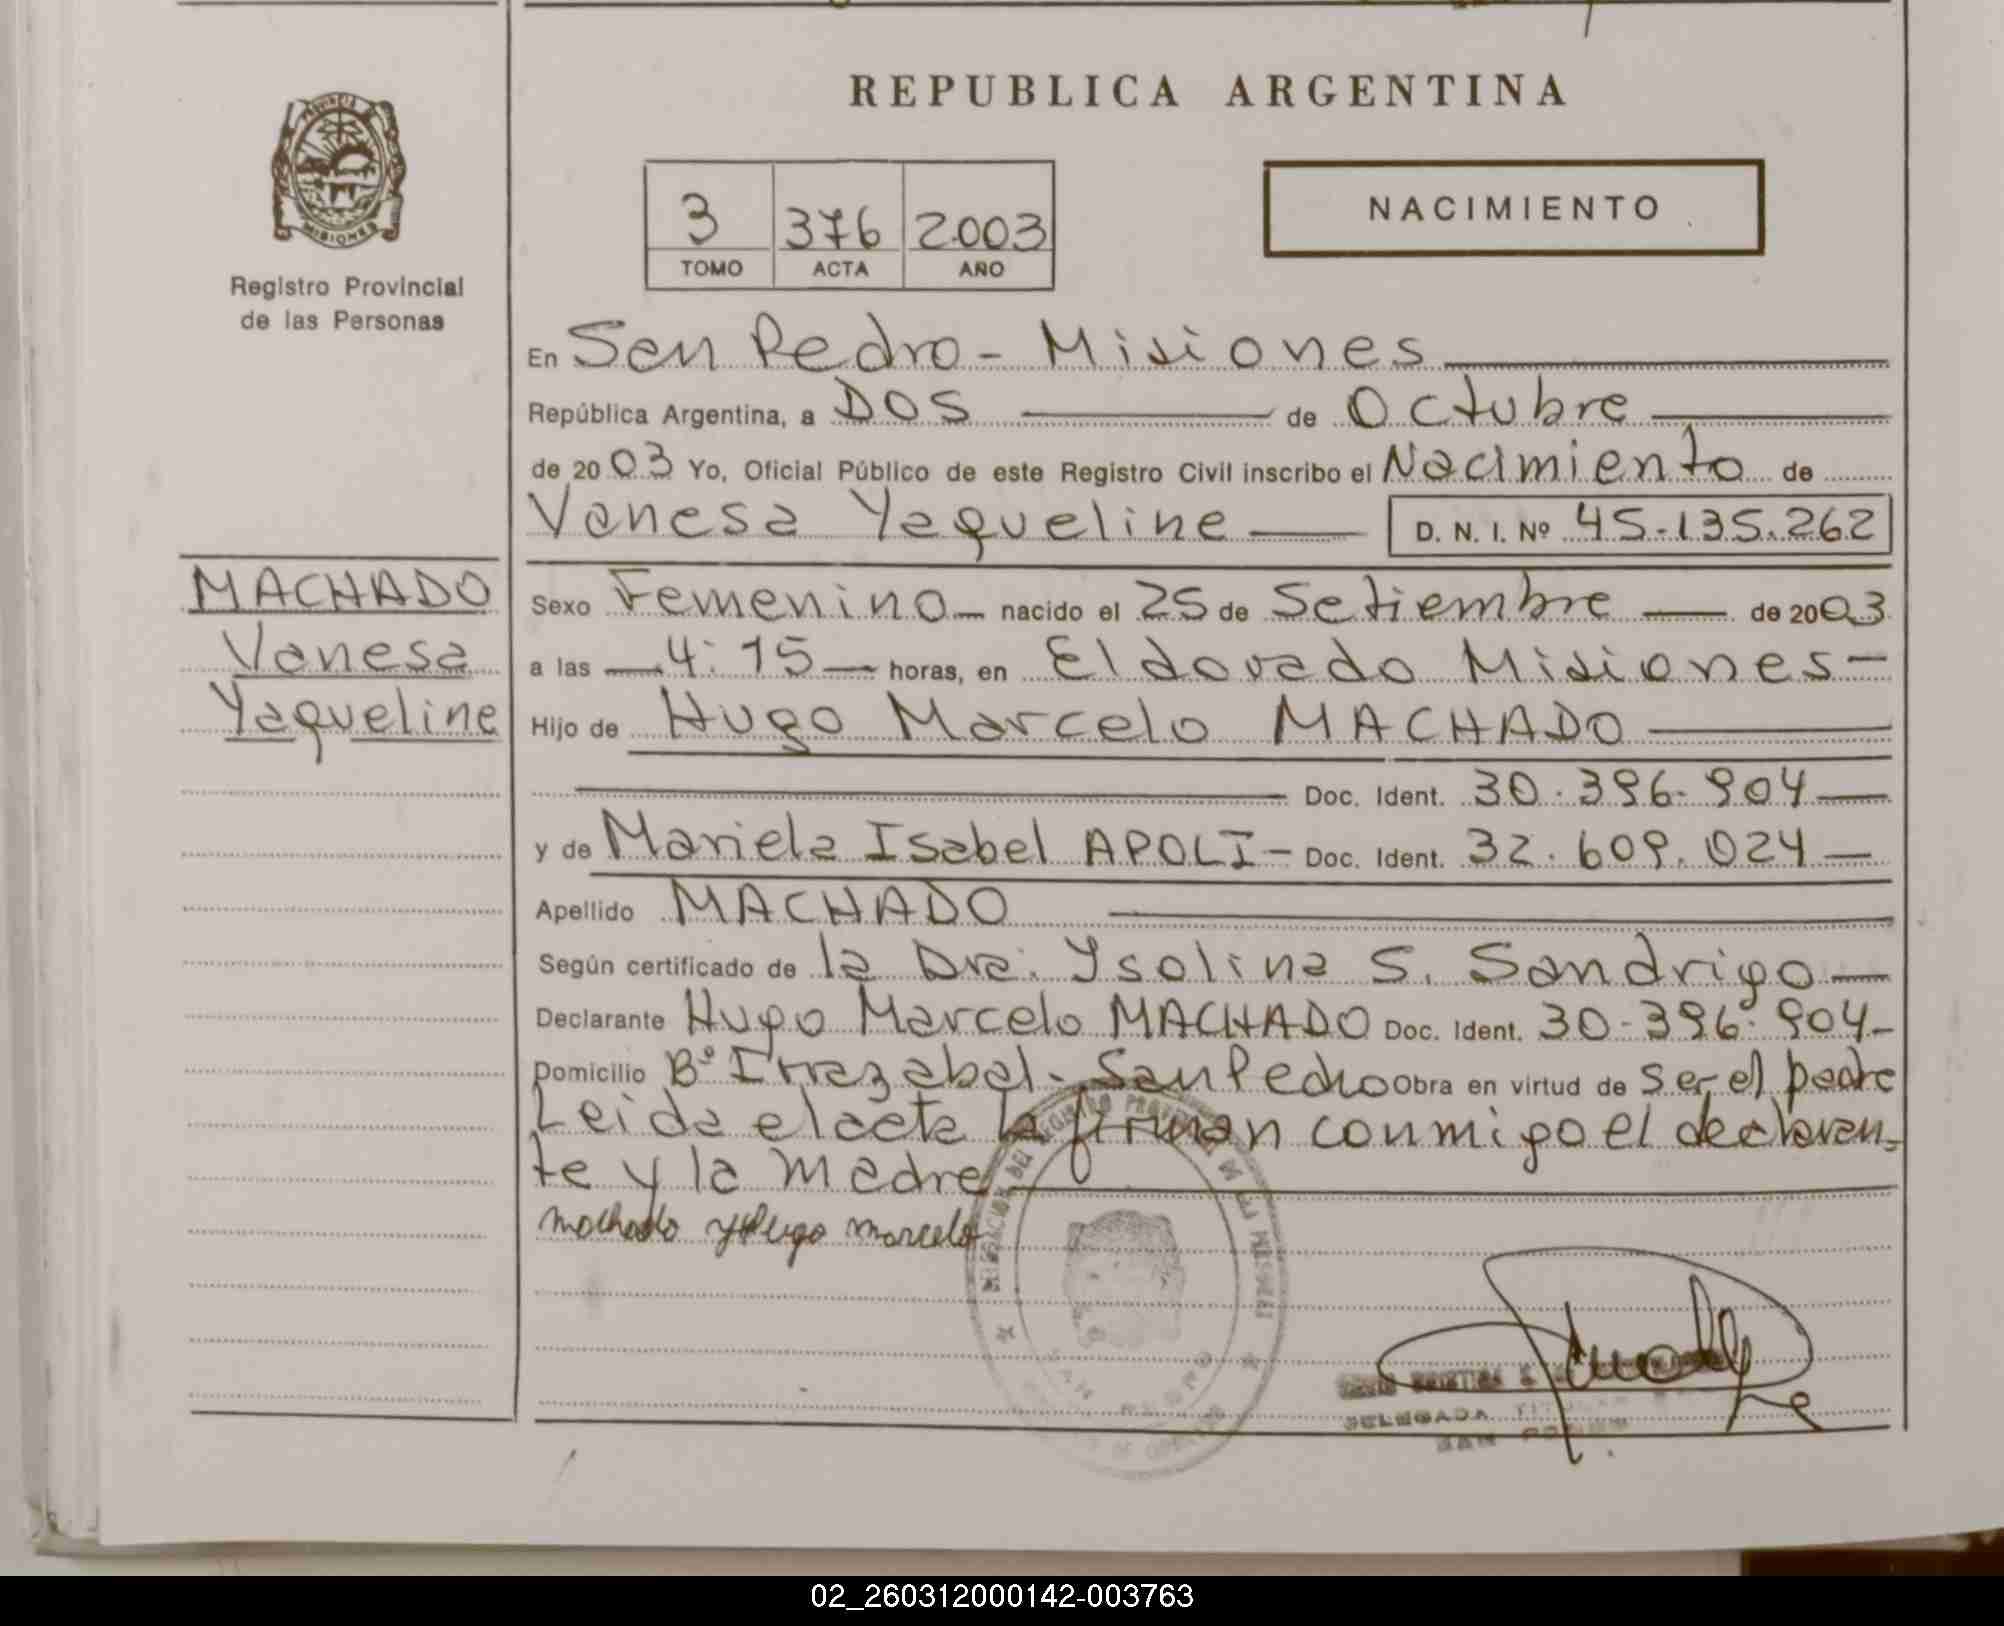 REPUBLICA ARGENTINA
PROVINCIA
MISIONES
Registro Provincial
de las Personas
3 376 2003
TOMO ACTA AÑO
NACIMIENTO
En San Pedro - Misiones
República Argentina, a DOS de Octubre
de 2003 Yo, Oficial Público de este Registro Civil inscribo el Nacimiento de
Vanesa Yaqueline D. N. I. Nº 45.135.262
MACHADO
Vanesa
Yaqueline
Sexo Femenino nacido el 25 de Setiembre de 2003
a las 4:15 horas, en Eldorado Misiones
Hijo de Hugo Marcelo MACHADO
Doc. Ident. 30.396.904
y de Mariela Isabel APOLI - Doc. Ident. 32.609.024
Apellido MACHADO
Según certificado de la Dra. Ysolina S. Sandrigo
Declarante Hugo Marcelo MACHADO Doc. Ident. 30.396.904
Domicilio Bº Irrazabal - San Pedro Obra en virtud de ser el padre
Leida el acta la firman conmigo el declaran-
te y la madre
machado Hugo marcelo
DELEGACION DEL REGISTRO PROVINCIAL DE LAS PERSONAS
SAN PEDRO
DELEGADA TITULAR
SAN PEDRO
02_260312000142-003763